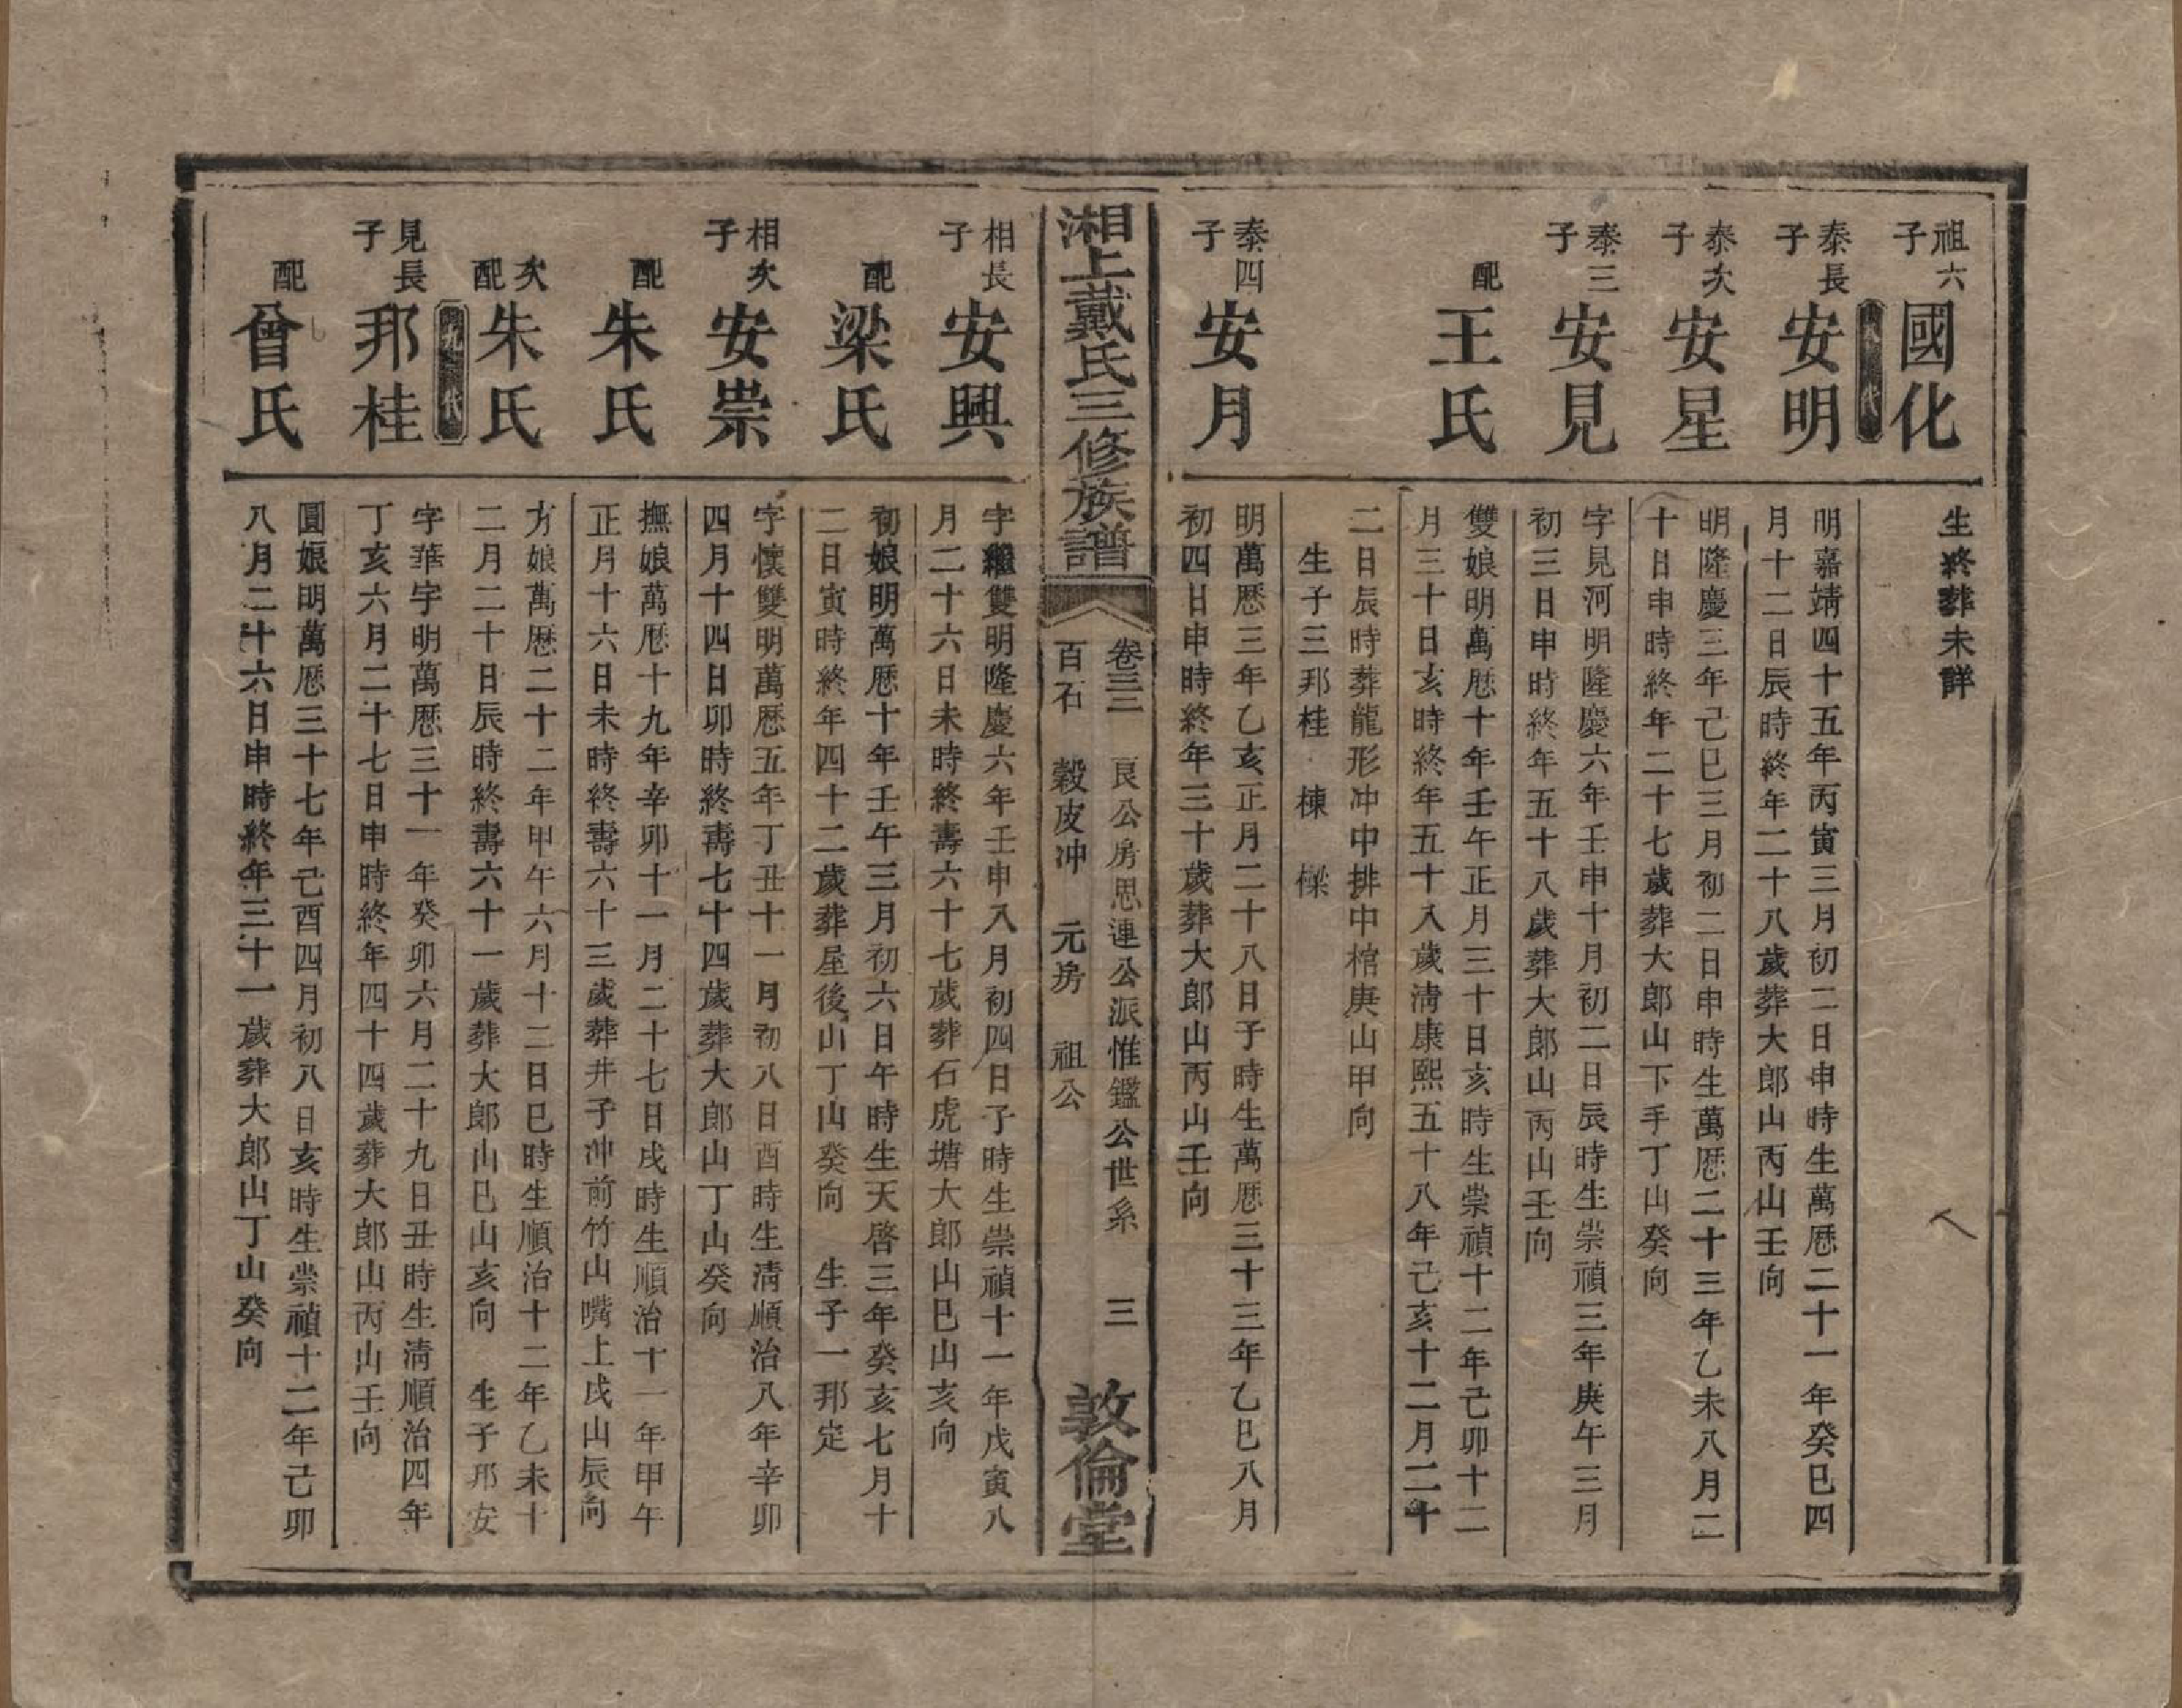 祖六子
國化
生終葬未詳
代
泰長子
安明
明嘉靖四十五年丙寅三月初二日申時生萬厯二十一年癸巳四
月十二日辰時終年二十八歲葬大郎山丙山壬向
泰次子
安星
明隆慶三年己巳三月初二日申時生萬厯二十三年乙未八月二
十日申時終年二十七歲葬大郎山下手丁山癸向
泰三子
安見
字見河明隆慶六年壬申十月初二日辰時生崇禎三年庚午三月
初三日申時終年五十八歲葬大郎山丙山壬向
配
王氏
雙娘明萬厯十年壬午正月三十日亥時生崇禎十二年己卯十二
月三十日亥時終年五十八歲淸康熙五十八年己亥十二月二十
二日辰時葬龍形冲中排中棺庚山甲向
生子三邦桂 棟 樑
泰四子
安月
明萬厯三年乙亥正月二十八日子時生萬厯三十三年乙巳八月
初四日申時終年三十歲葬大郎山丙山壬向
湘上戴氏三修族譜
卷三三 良公房思連公派惟鑑公世系 三
百石 穀皮冲 元房 祖公
敦倫堂
相長子
安興
字繼雙明隆慶六年壬申八月初四日子時生崇禎十一年戊寅八
月二十六日未時終壽六十七歲葬石虎塘大郎山巳山亥向
配
梁氏
初娘明萬厯十年壬午三月初六日午時生天啓三年癸亥七月十
二日寅時終年四十二歲葬屋後山丁山癸向 生子一邦定
相次子
安崇
字懷雙明萬厯五年丁丑十一月初八日酉時生淸順治八年辛卯
四月十四日卯時終壽七十四歲葬大郎山丁山癸向
配
朱氏
撫娘萬厯十九年辛卯十一月二十七日戌時生順治十一年甲午
正月十六日未時終壽六十三歲葬井子冲前竹山嘴上戌山辰向
次配
朱氏
方娘萬厯二十二年甲午六月十二日巳時生順治十二年乙未十
二月二十日辰時終壽六十一歲葬大郎山巳山亥向 生子邦安
九 代
見長子
邦桂
字華宇明萬厯三十一年癸卯六月二十九日丑時生淸順治四年
丁亥六月二十七日申時終年四十四歲葬大郎山丙山壬向
配
曾氏
圓娘明萬厯三十七年己酉四月初八日亥時生崇禎十二年己卯
八月二十六日申時終年三十一歲葬大郎山丁山癸向